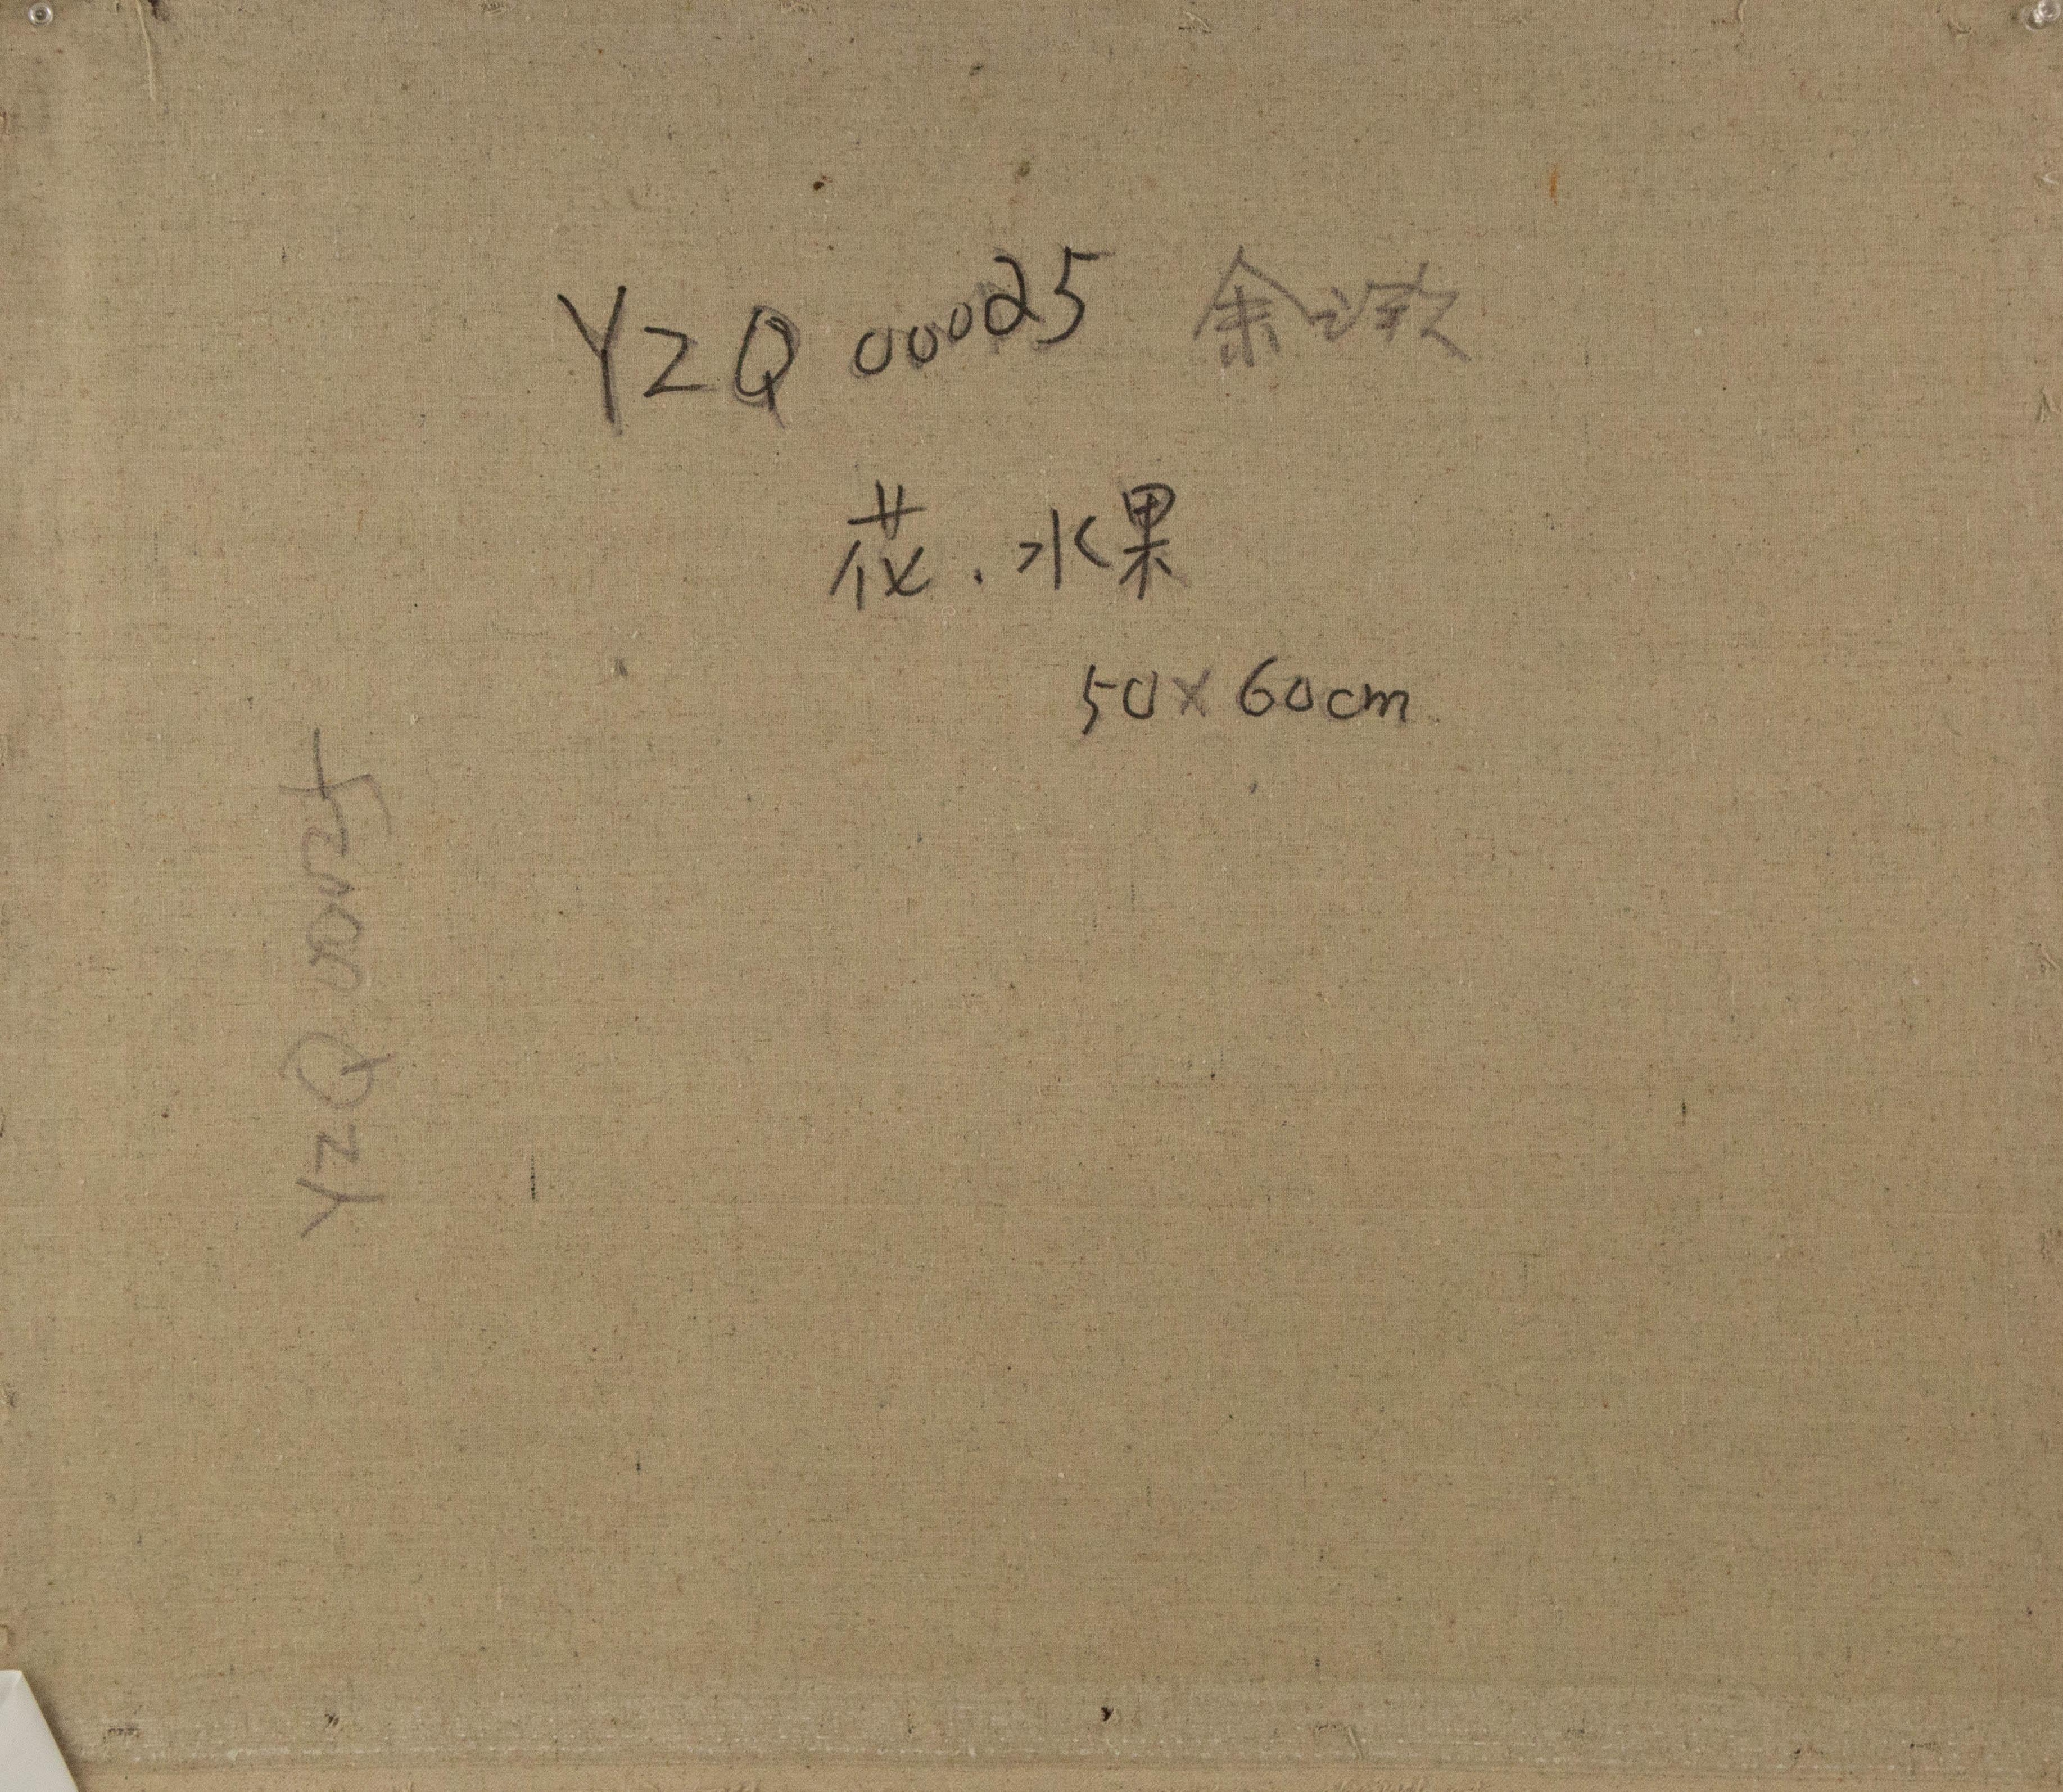 YZQ 00025 余
花.水果
50×60cm
YZQ 00025